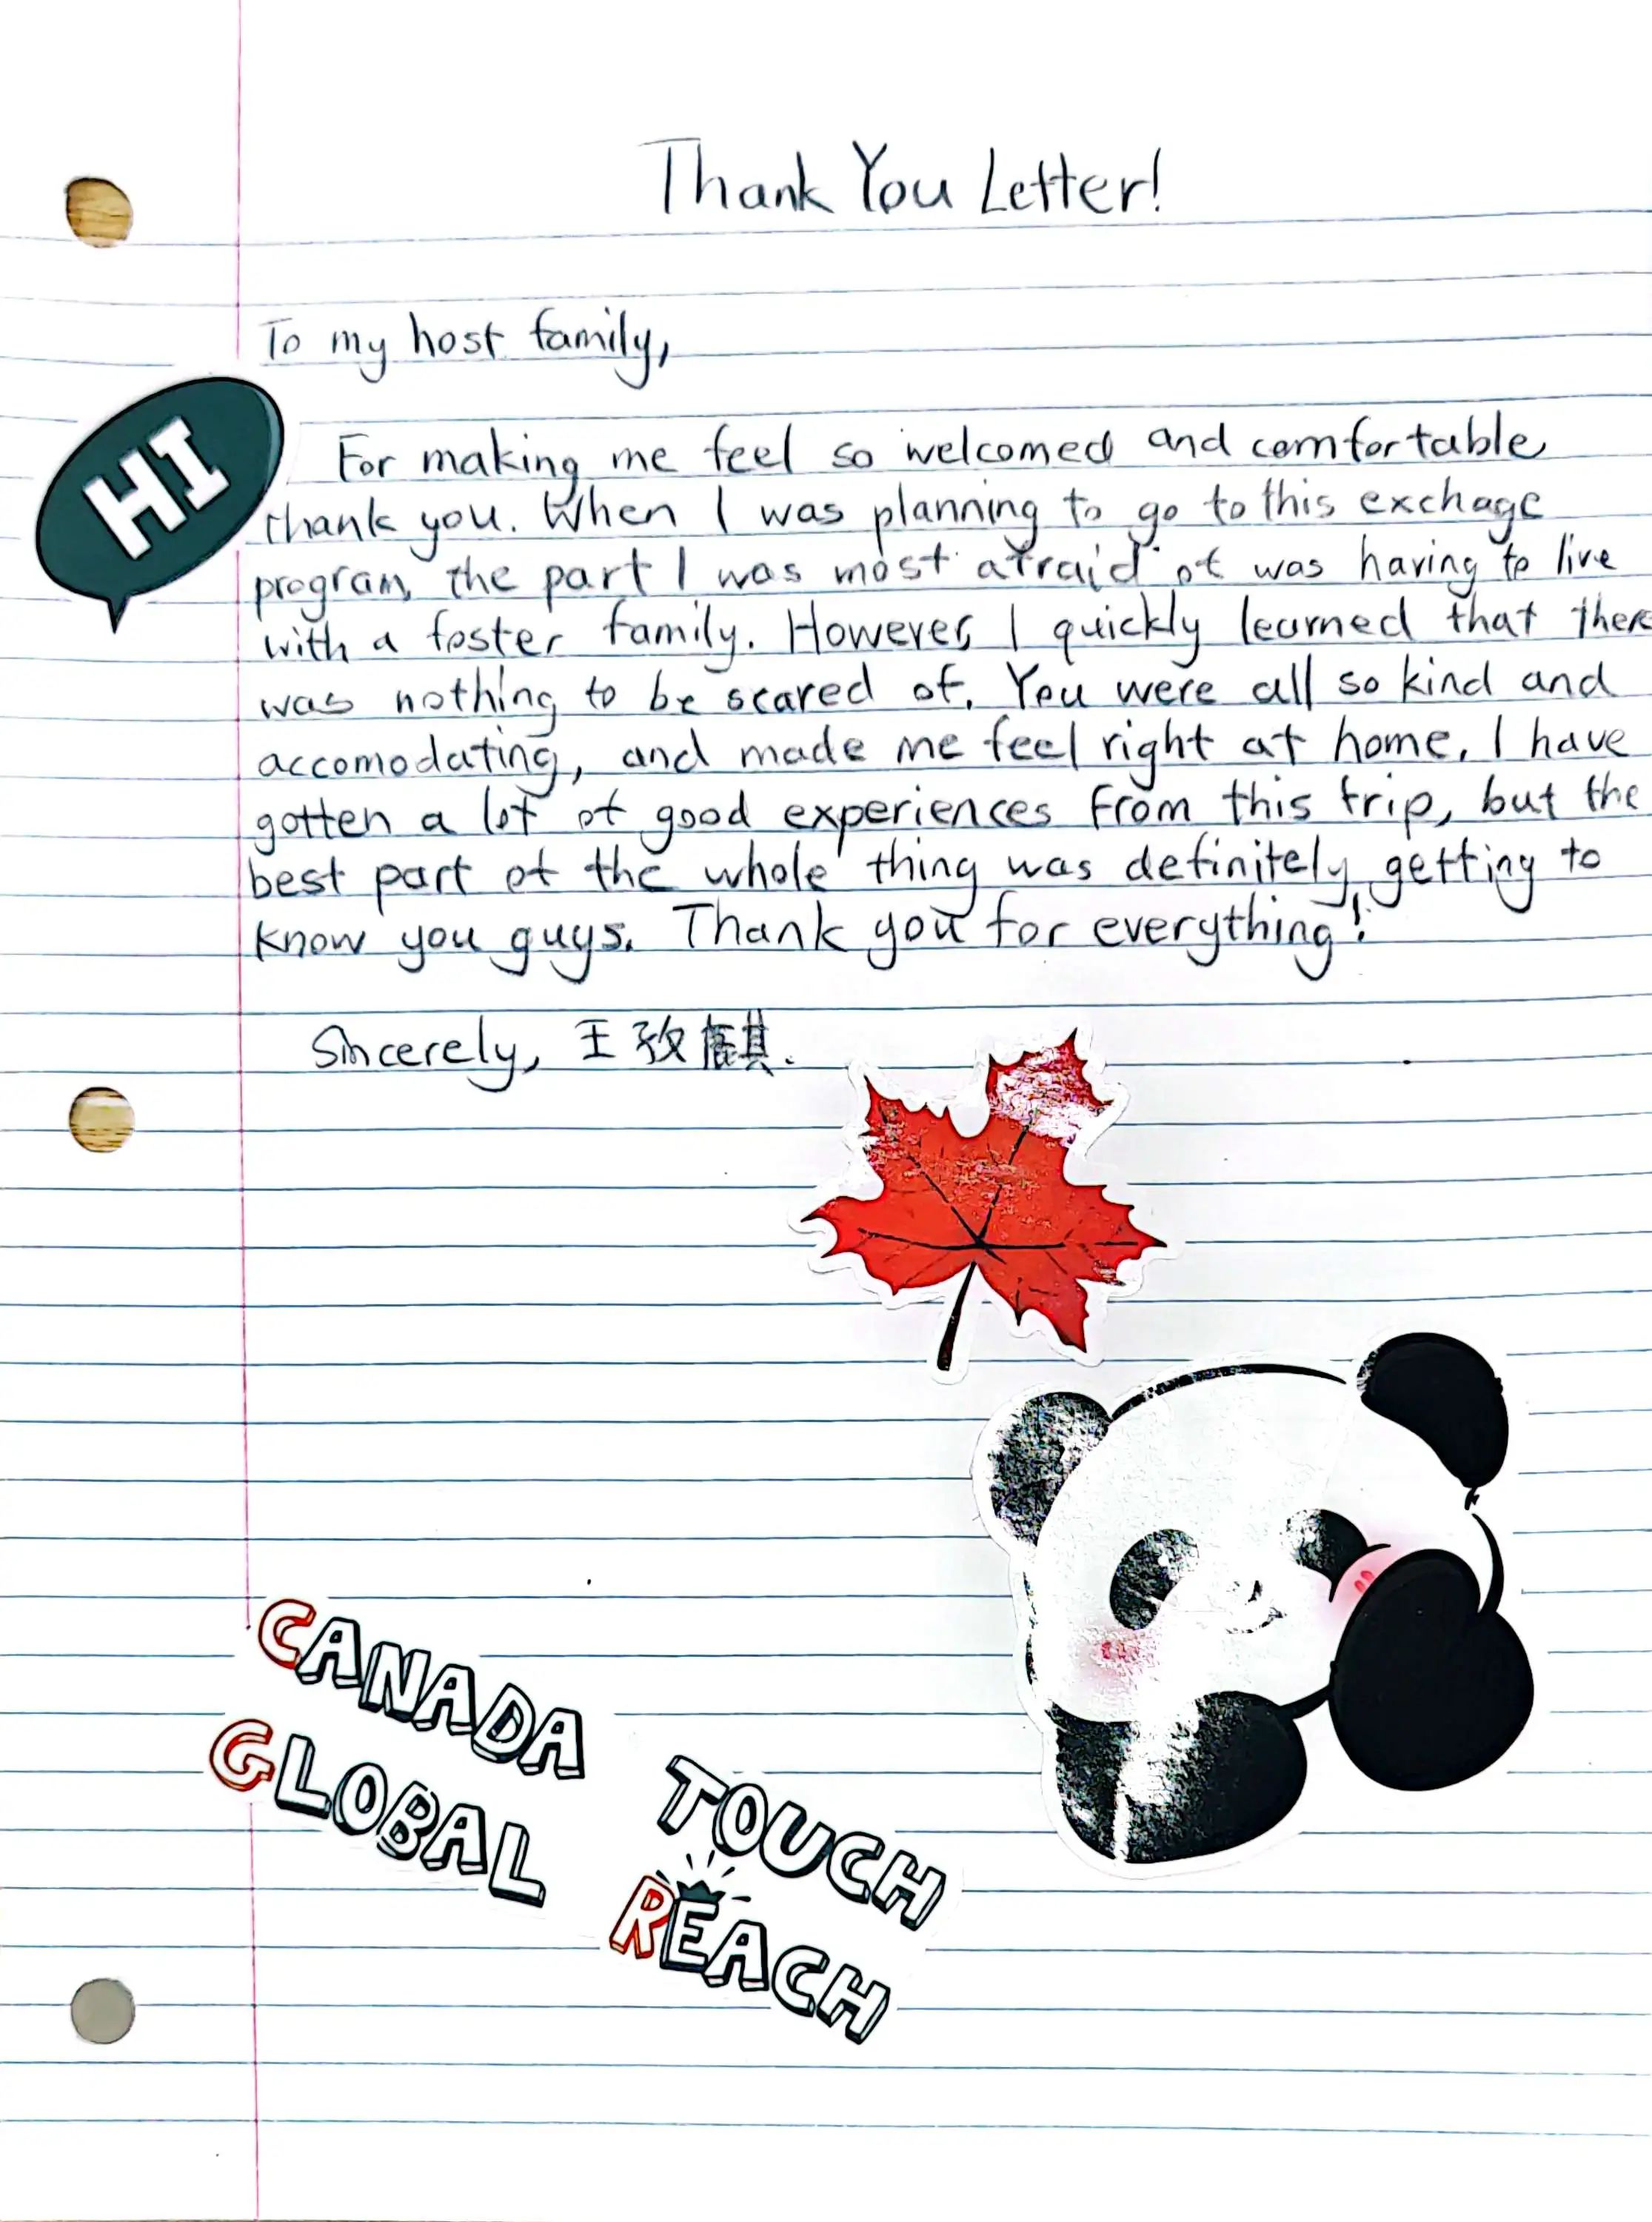 Thank You Letter!
To my host family,
HI
For making me feel so welcomed and comfortable
thank you. When I was planning to go to this exchage
program, the part I was most afraid of was having to live
with a foster family. However, I quickly learned that there
was nothing to be scared of. You were all so kind and
accomodating, and made me feel right at home. I have
gotten a lot of good experiences from this trip, but the
best part of the whole thing was definitely getting to
know you guys. Thank you for everything!
Sincerely, 王孜麒.
CANADA
GLOBAL
TOUCH
REACH